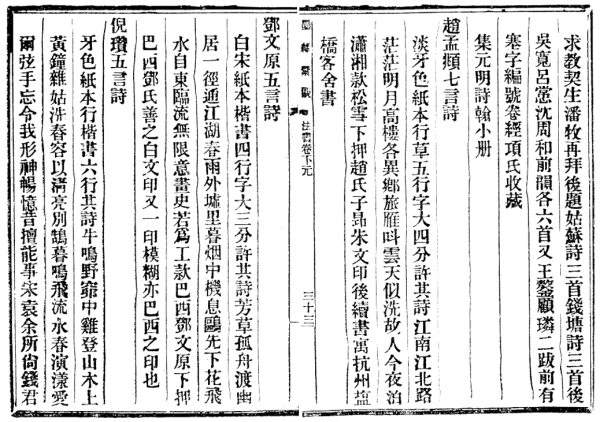 求教契生潘牧再拜後題姑蘇詩三首錢塘詩三首後
吳寬呂㦂沈周和前韻各六首又王鏊顧璘二跋前有
寒字編號卷經項氏收藏
集元明詩翰小册
趙孟頫七言詩
淡牙色紙本行草五行字大四分許其詩江南江北路
茫茫明月高樓各異鄉旅雁呌雲天似洗故人今夜泊
瀟湘款松雪下押趙氏子昻朱文印後續書寓杭州鹽
橋客舍書
三十三
鄧文原五言詩
白宋紙本楷書四行字大三分許其詩芳草孤舟渡幽
居一徑通江湖春雨外墟里暮烟中機息鷗先下花飛
水自東臨流無限意畫史若爲工款巴西鄧文原下押
巴西鄧氏善之白文印又一印模糊亦巴西之印也
倪瓚五言詩
牙色紙本行楷書六行其詩牛鳴野窌中雞登山木上
黃鐘雜姑洗春容以淸亮別鵠暮鳴飛流水春演漾愛
爾弦手忘令我形神暢憶昔擅能事宋袁余所尙錢君